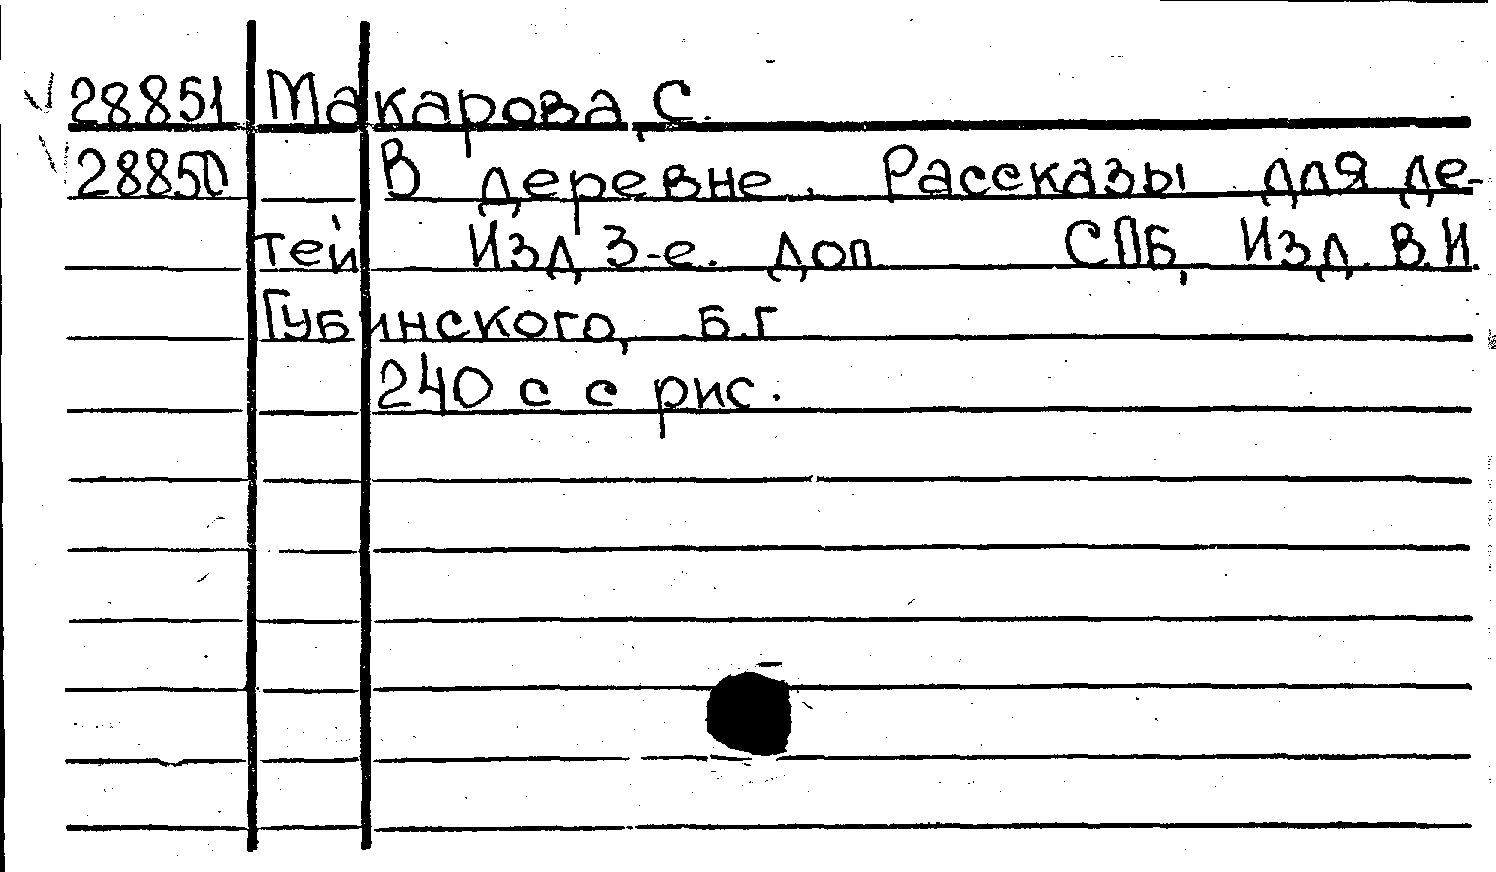 28851 Макарова, С.
28850 В деревне. Рассказы для де-
тей Изд, 3-е. доп СПБ, Изд. В.И.
Губинского, б.г
240 с с рис.